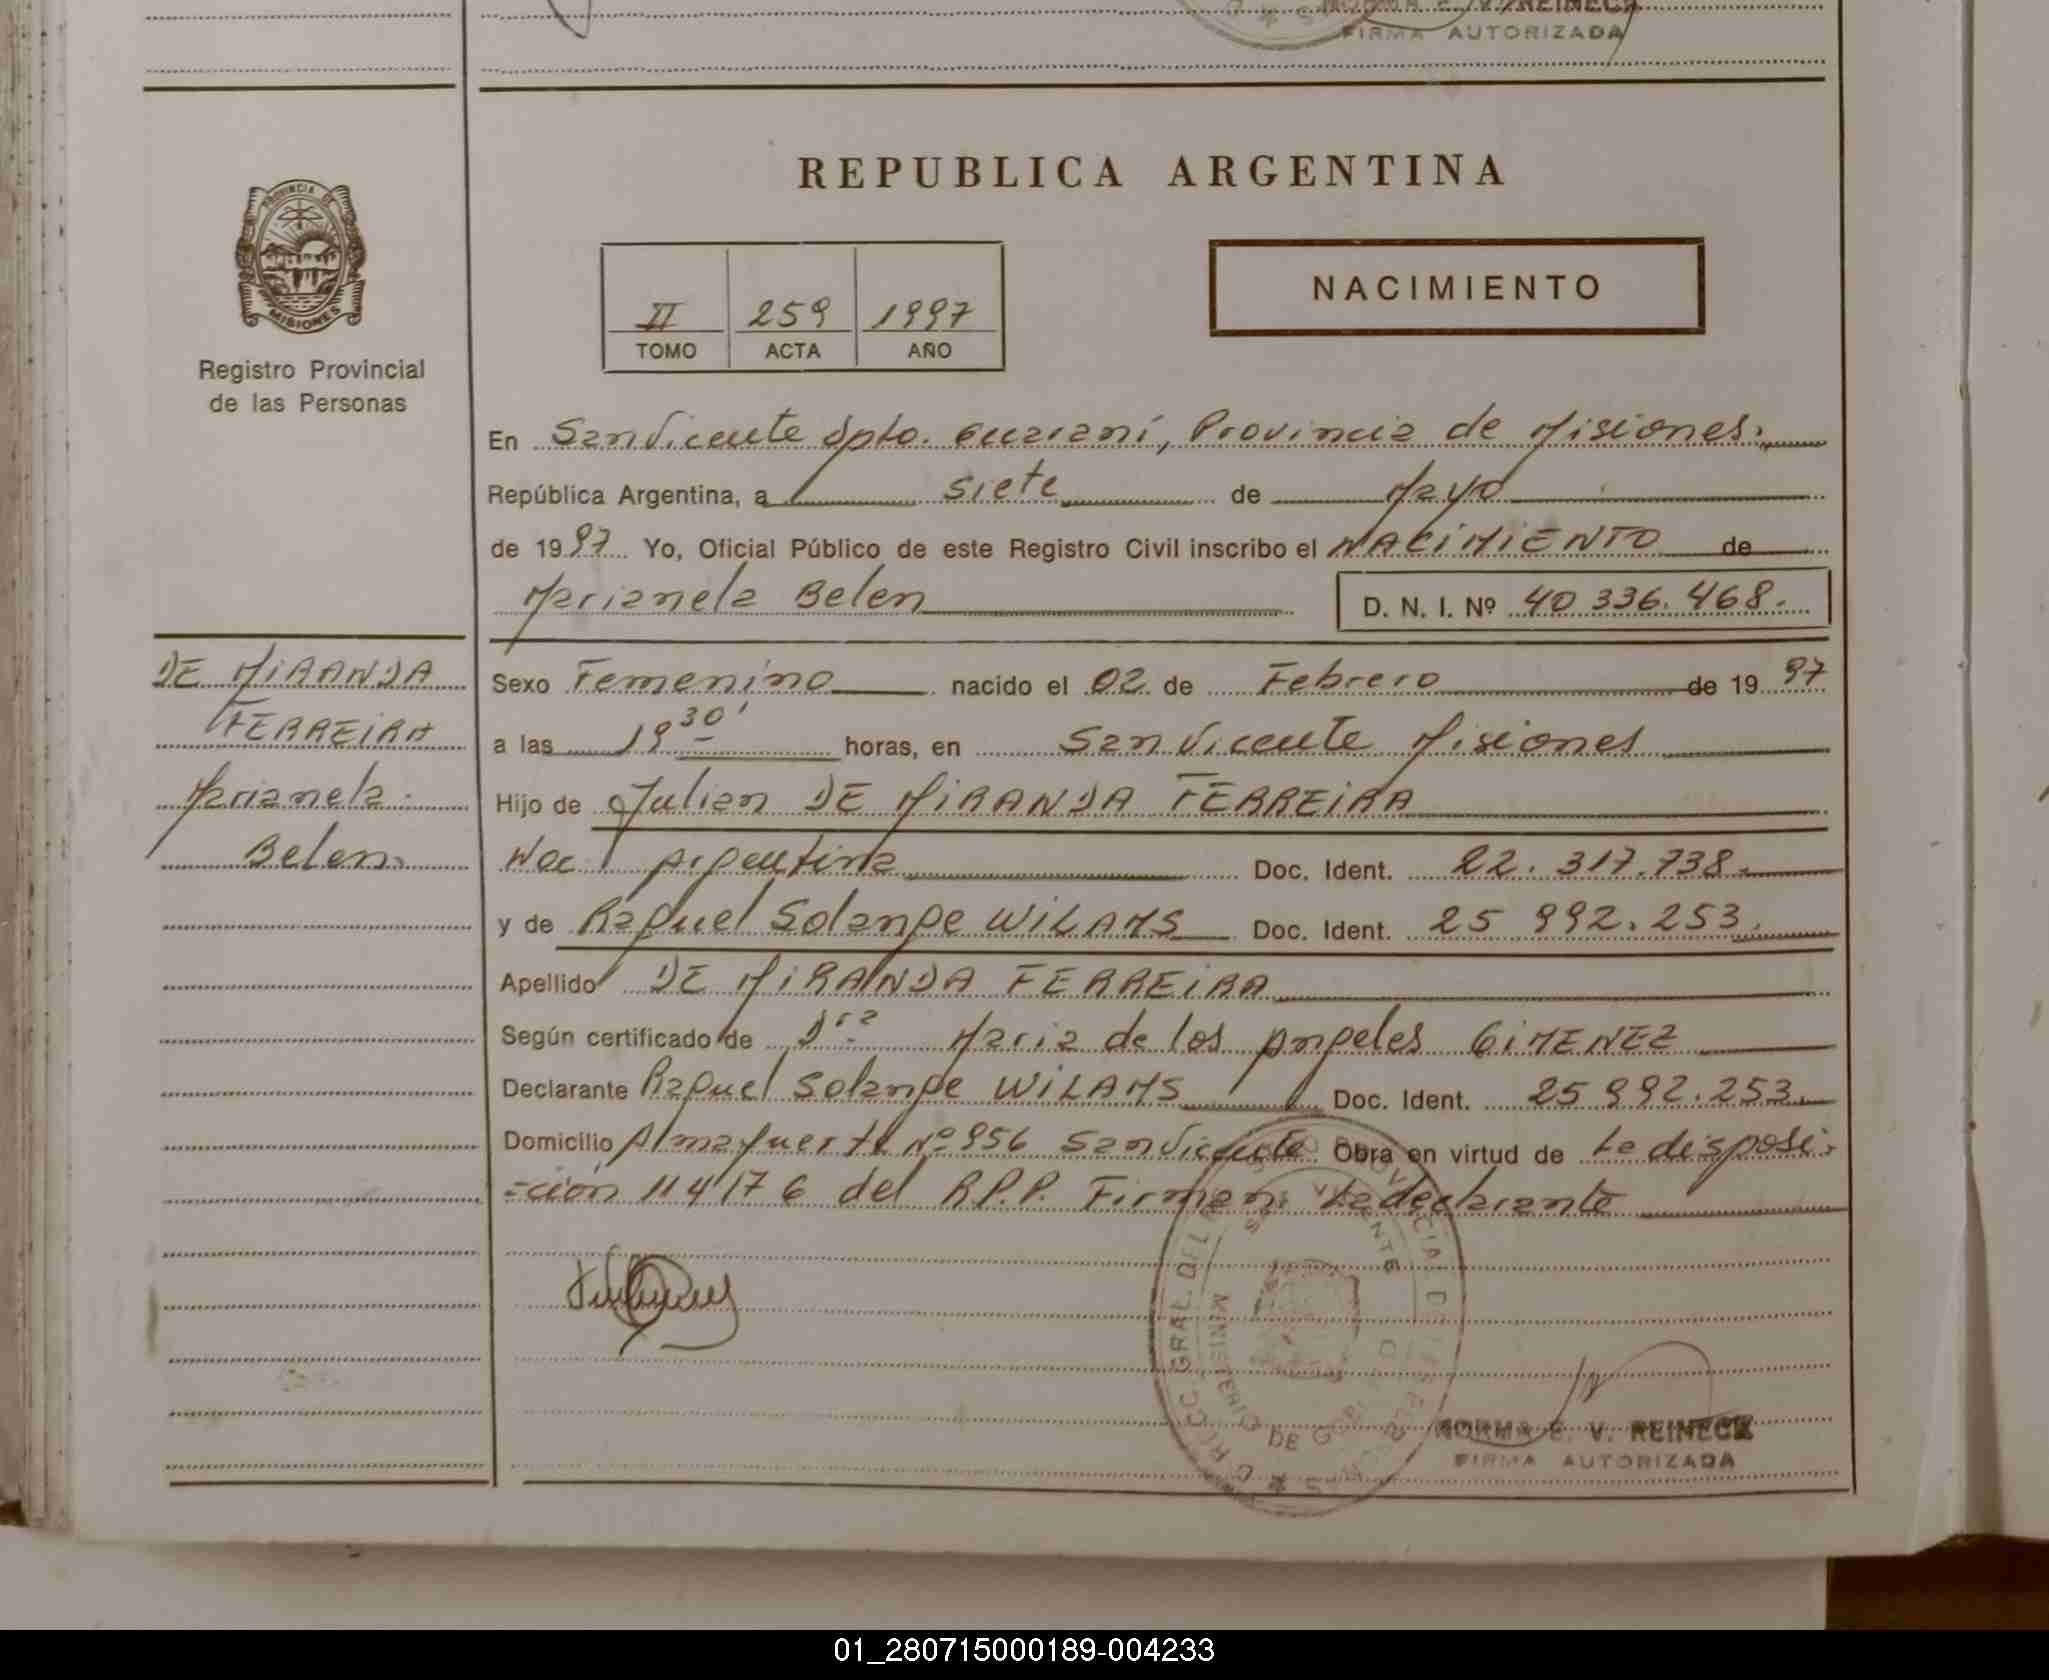 NORMA E. V. REINECK
FIRMA AUTORIZADA
PROVINCIA DE
MISIONES
Registro Provincial
de las Personas
REPUBLICA ARGENTINA
II 259 1997
TOMO ACTA AÑO
NACIMIENTO
En San Vicente Dpto. Guaraní, Provincia de Misiones.
República Argentina, a siete de Mayo
de 1997 Yo, Oficial Público de este Registro Civil inscribo el NACIMIENTO de
Marianela Belen D. N. I. Nº 40 336.468.
DE MIRANDA
FERREIRA
Marianela
Belen
Sexo Femenino nacido el 02 de Febrero de 1997
a las 19 30' horas, en San Vicente Misiones
Hijo de Julian DE MIRANDA FERREIRA
Nac Argentina Doc. Ident. 22.317.738.
y de Raquel Solange WILAMS Doc. Ident. 25 992.253.
Apellido DE MIRANDA FERREIRA
Según certificado de Dra Maria de los Angeles GIMENEZ
Declarante Raquel Solange WILAMS Doc. Ident. 25 992.253.
Domicilio Almafuerte Nº 956 San Vicente Obra en virtud de La disposi-
-ción 114/76 del R.P.P. Firman: La declarante
SAN VICENTE
MINISTERIO DE
NORMA E. V. REINECK
FIRMA AUTORIZADA
01_280715000189-004233